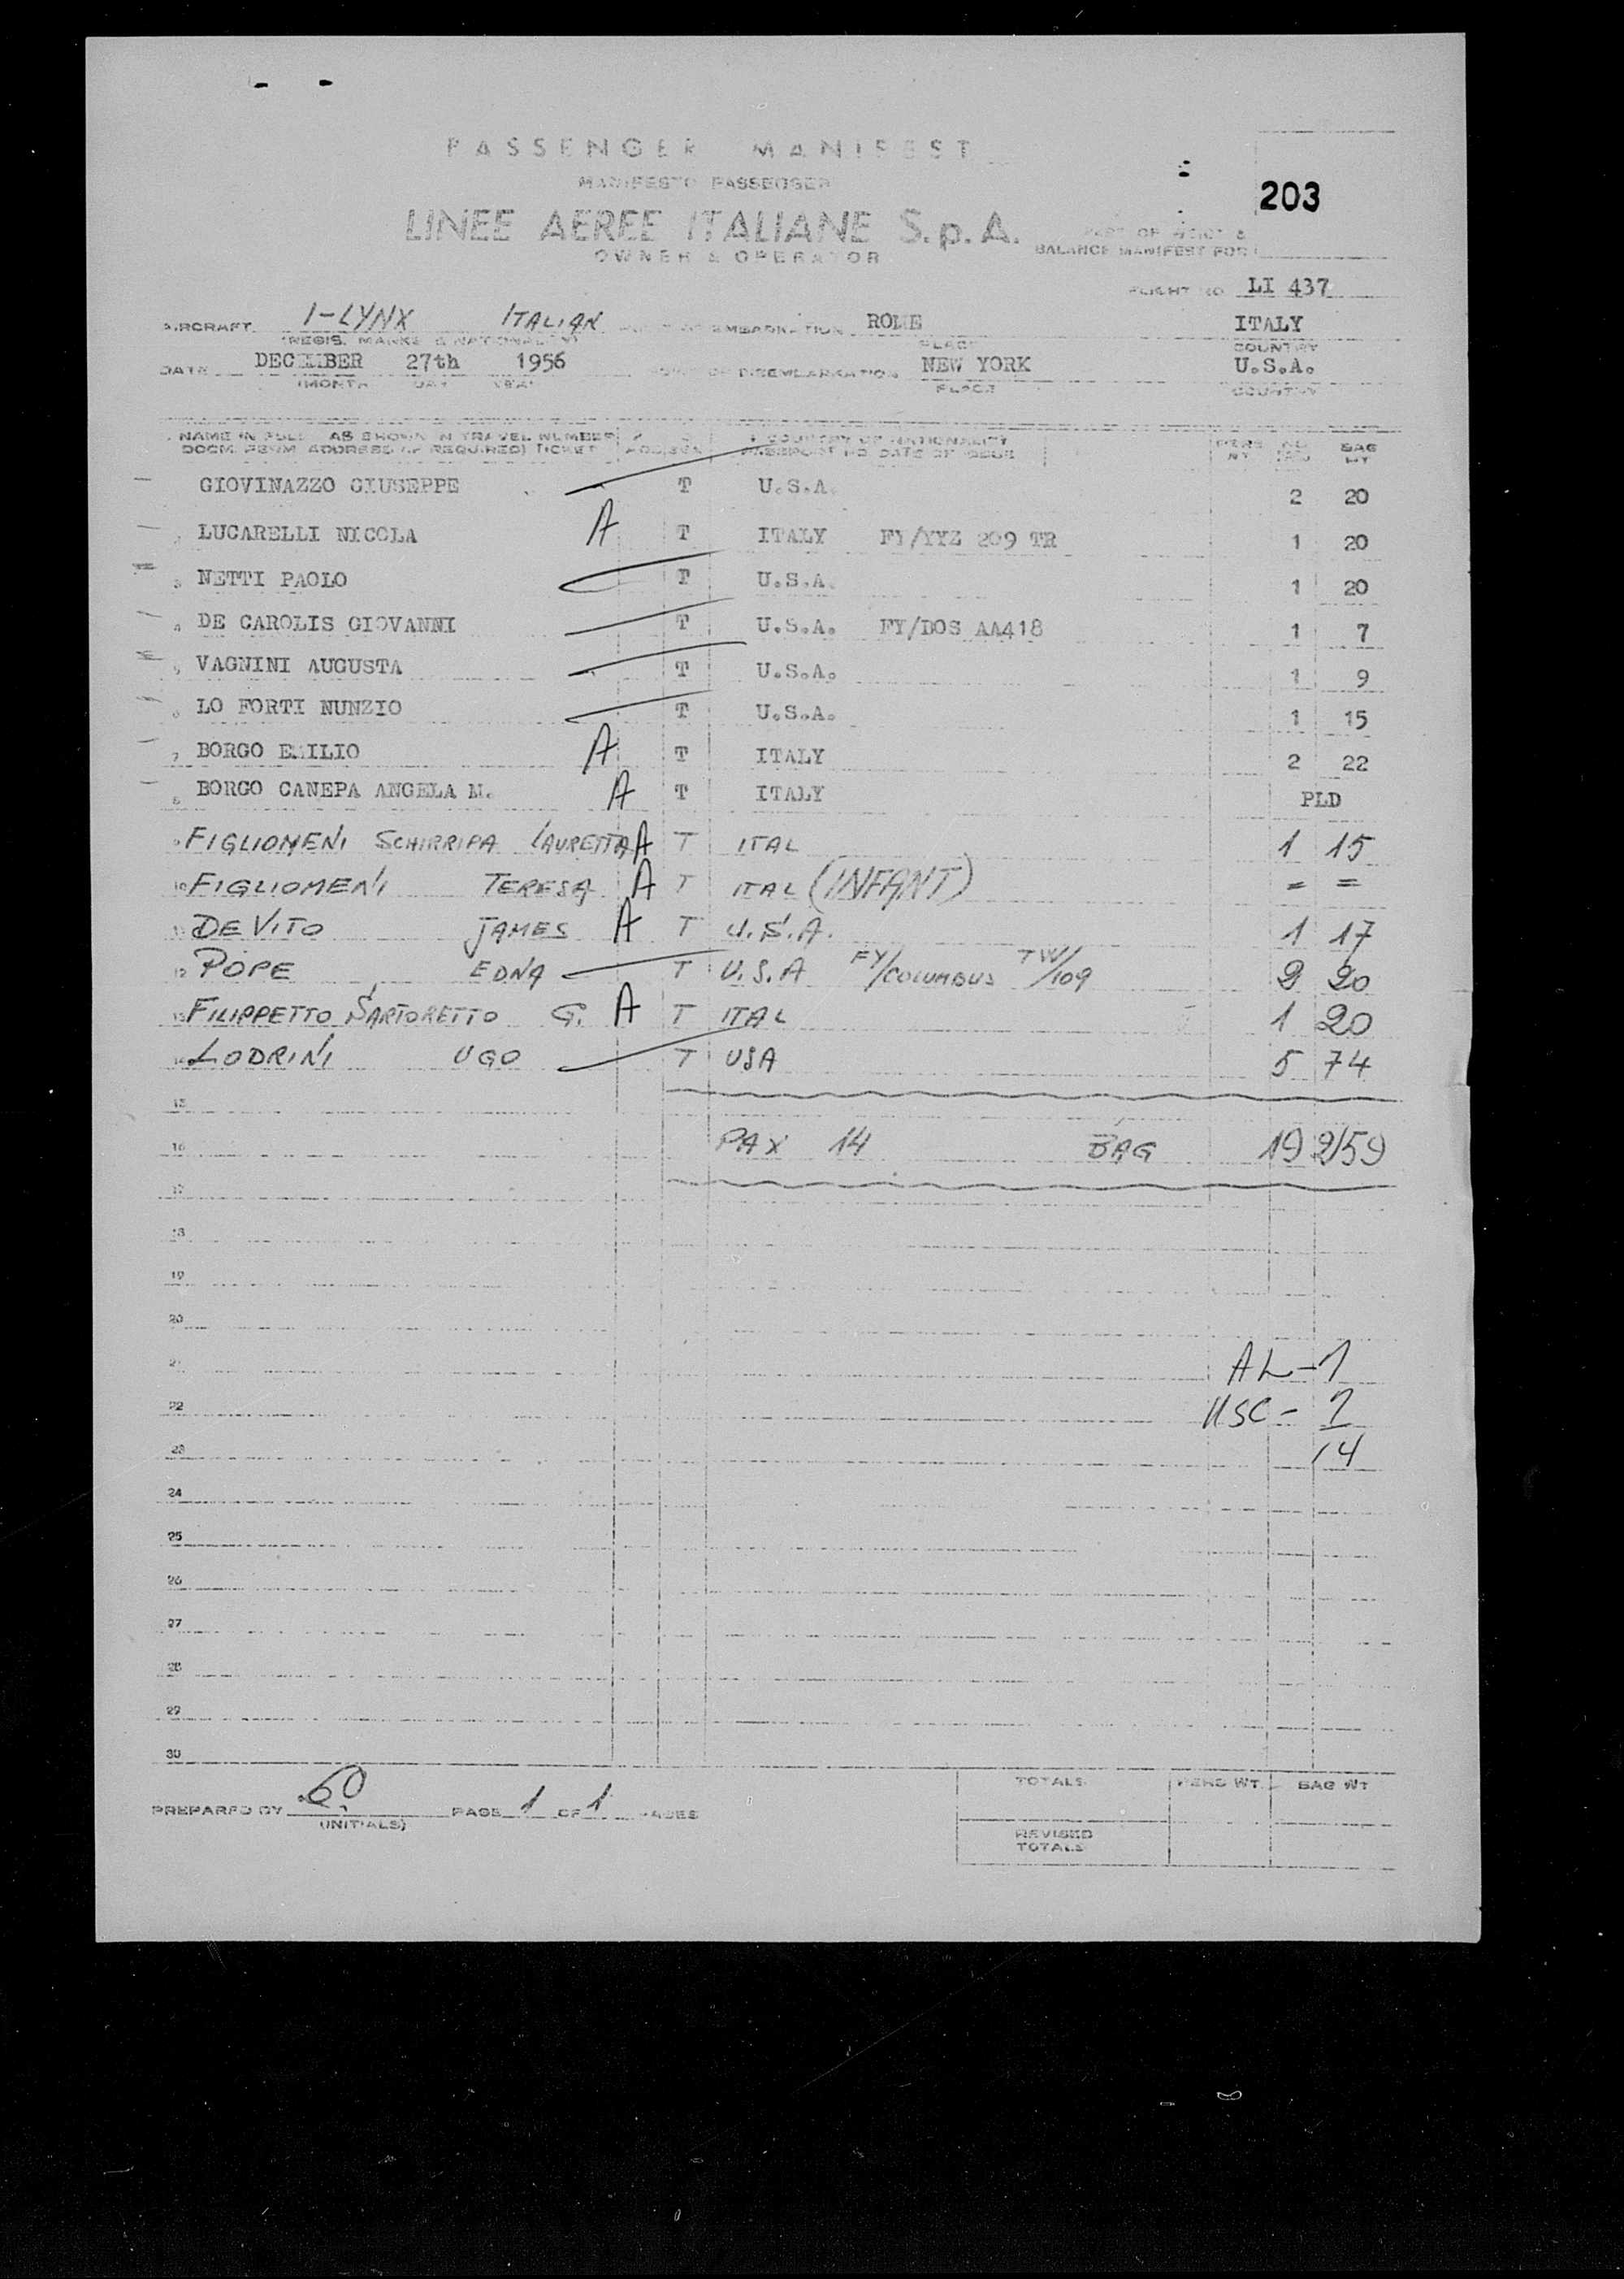 PASSENGER MANIFEST
MANIFESTO PASSEGGERI
203
LINEE AEREE ITALIANE S.p.A.
OWNER & OPERATOR
PART OF WEIGHT &
BALANCE MANIFEST FOR
FLIGHT NO LI 437
AIRCRAFT I-LYNX ITALIAN EMBARKATION ROME ITALY
(REGIS. MARKS & NATIONALITY) PLACE COUNTRY
DATE DECEMBER 27th 1956 OF DISEMBARKATION NEW YORK U.S.A.
(MONTH DAY YEAR PLACE COUNTRY
NAME IN FULL AS SHOWN IN TRAVEL NUMBER COUNTRY OF NATIONALITY PERS BAG
DOCM. PERM. ADDRESS (IF REQUIRED) TICKET PASSPORT NO DATE OF ISSUE WT WT
GIOVINAZZO GIUSEPPE T U.S.A. 2 20
LUCARELLI NICOLA A T ITALY FY/YYZ 209 TR 1 20
3 NETTI PAOLO T U.S.A. 1 20
4 DE CAROLIS GIOVANNI T U.S.A. FY/BOS AA418 1 7
5 VAGNINI AUGUSTA T U.S.A. 1 9
6 LO FORTI NUNZIO T U.S.A. 1 15
7 BORGO EMILIO A T ITALY 2 22
8 BORGO CANEPA ANGELA M. A T ITALY PLD
9 FIGLIOMENI SCHIRRIPA LAURETTA A T ITAL 1 15
10 FIGLIOMENI TERESA A T ITAL (INFANT) = =
11 DE VITO JAMES A T U.S.A. 1 17
12 POPE EDNA T U.S.A FY/COLUMBUS TW/109 2 20
13 FILIPPETTO SARTORETTO G. A T ITAL 1 20
14 LODRINI UGO T USA 5 74
15
16 PAX 14 BAG 19 259
17
18
19
20
21 AL-7
22 USC- 7
23 14
24
25
26
27
28
29
30
PREPARED BY PAGE 1 OF 1 PAGES
(INITIALS)
TOTALS PERS WT. BAG WT
REVISED
TOTALS